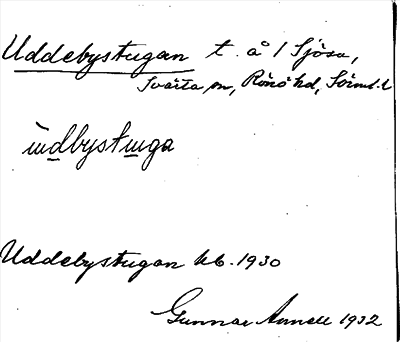 Uddebystugan t. å 1 Sjösa,
Svärta sn, Rönö hd, Söderml. l
ùdbystuga
Uddebystugan kb. 1930
Gunnar Annell 1932